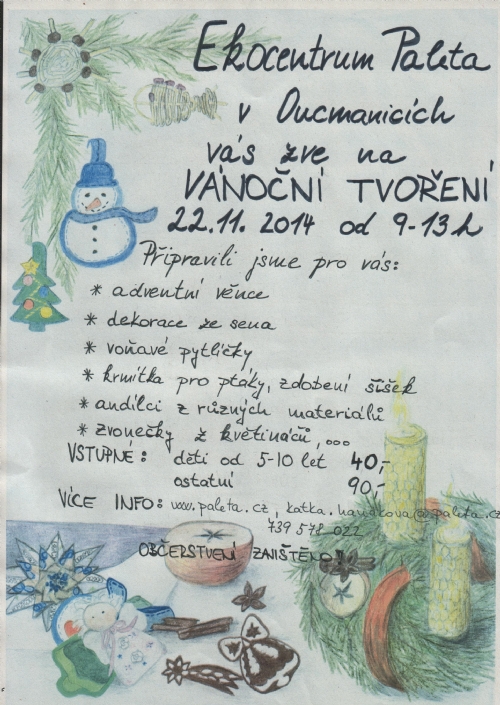 Ekocentrum Paleta
v Oucmanicích
vás zve na
VÁNOČNÍ TVOŘENÍ
22.11. 2014 od 9-13h
Připravili jsme pro vás:
* adventní věnce
* dekorace ze sena
* voňavé pytlíčky
* krmítka pro ptáky, zdobení šišek
* andílci z různých materiálů
* zvonečky z květináčů, ...
VSTUPNÉ: děti od 5-10 let 40,-
ostatní 90,-
VÍCE INFO: www.paleta.cz, katka.navalkova@paleta.cz
739 578 022
OBČERSTVENÍ ZAJIŠTĚNO!